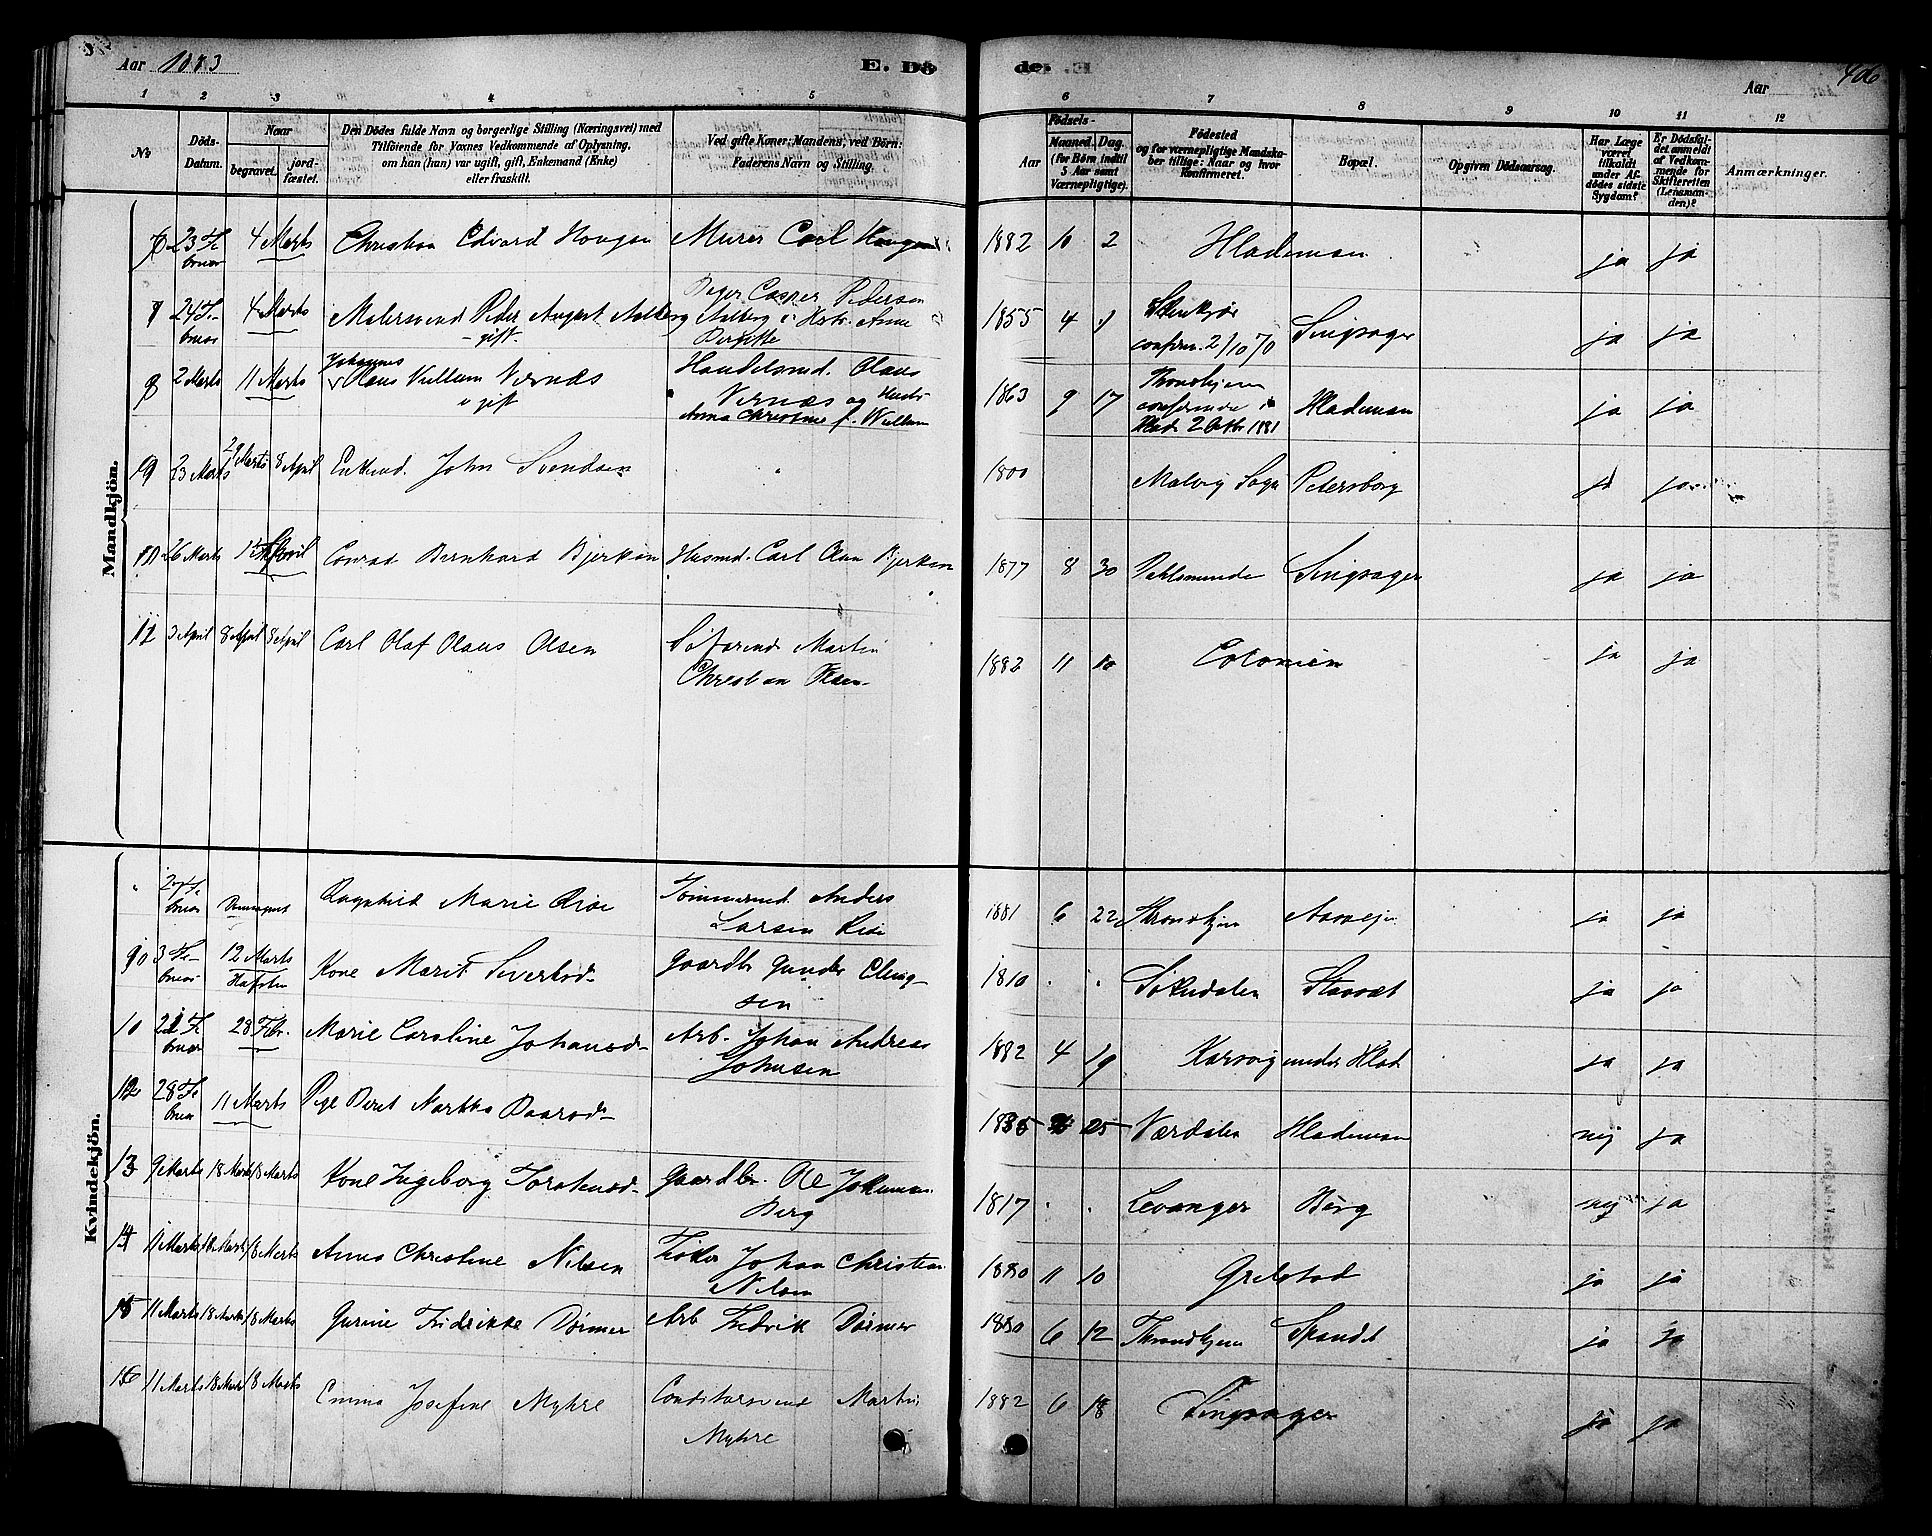 Aar 1883
E. Dö
de: .E
Aar
406
1 2 3 4 5 6 7 8 9 10 11 12
No
Döds-
Datum.
Naar
begravet.
jord-
fæstet.
Den Dödes fulde Navn og borgerlige Stilling (Næringsvei) med
Tilföiende for Voxnes Vedkommende af Oplysning,
om han (hun) var ugift, gift, Enkemand (Enke)
eller fraskilt.
Ved gifte Koner: Mandens, ved Børn:
Faderens Navn og Stilling.
Födsels-
Aar
Maaned. Dag.
(for Börn indtil
5 Aar samt
Værnepligtige).
Födested
og for værnepligtige Mandska-
ber tillige: Naar og hvor
Konfirmeret.
Bopæl.
Opgiven Dödsaarsag.
Har Læge
været
tilkaldt
under Af-
dödes sidste
Sygdom?
Er Dödsfal-
det anmeldt
af Vedkom-
mende for
Skifteretten
(Lensman-
den)?
Anmærkninger.
Mandkjön.
23 Fe
bruar
4 Marts Christian Edvard Haugan Murer Carl Haugan 1882 10 2 Hlademoen ja ja
24 Fe-
bruar
4 Marts Malersvend Peder August Aalberg
gift
Casper Pedersen
Aalberg Hstr. Anne
Beritte
1855 4
confirm. 2/10 70
Singsager ja ja
8 2 Marts 11 Marts
Johannes
Olaus Vullum Vernæs
ugift
Handelsmd. Olaus
Vernæs og Hustr.
Anna Christine f. Wullum
1863 9 17
Throndhjem
confirmeret i
Hlade 2 Oktbr 1881
Hlademoen ja ja
23 Marts 29 Marts 8 April Enkemd. John Svendsen 1800 Malvig Sogn Petersborg ja ja
26 Marts April Conrad Bernhard Bjerkan Husmd. Carl Olan Bjerkan 1877 8 30 Singsager ja ja
12 3 April 8 April 8 April Carl Olaf Olaus Olsen
Martin
Christian Olsen
1882 11 10 Colonien ja ja
Kvindekjön.
27 Fe
bruar
Ragnhild Marie Risi
Tömmermd. Anders
Larsen Risi
1881 6 22 Throndhjem Aavejen ja ja
3 Fe-
bruar
12 Marts
Hafsten
Kone Marit Sivertsd.
Gaardbr Gunder
sen
1810 Soknedalen Stavset ja ja
10 22 Fe
bruar
28 Febr. Marie Caroline Johansd.
Arb. Johan Andreas
Johnsen
1882 4 19 under Hlad ja ja
12 28 Fe
bruar
11 Marts Pige Beret Baarsd.
25 Værdalen Hlademoen nej ja
13 9 Marts 18 Marts 18 Marts Kone Ingeborg Torstensd.
Gaardbr. Ole
Berg
1817 Levanger Berg nej ja
14 11 Marts 18 Marts 18 Marts Anna Christine Nilsen
Johan Christian
Nilsen
1880 11 10 Grilstad ja ja
15 11 Marts 18 Marts 18 Marts Gurine Fredrikke Dörmer Arb Fredrik Dörmer 1880 6 12 Throndhjem ja ja
16 11 Marts 18 Marts 18 Marts Emma Josefine Myhre
Conditorsvend Martin
Myhre
1882 6 18 Singsager ja ja